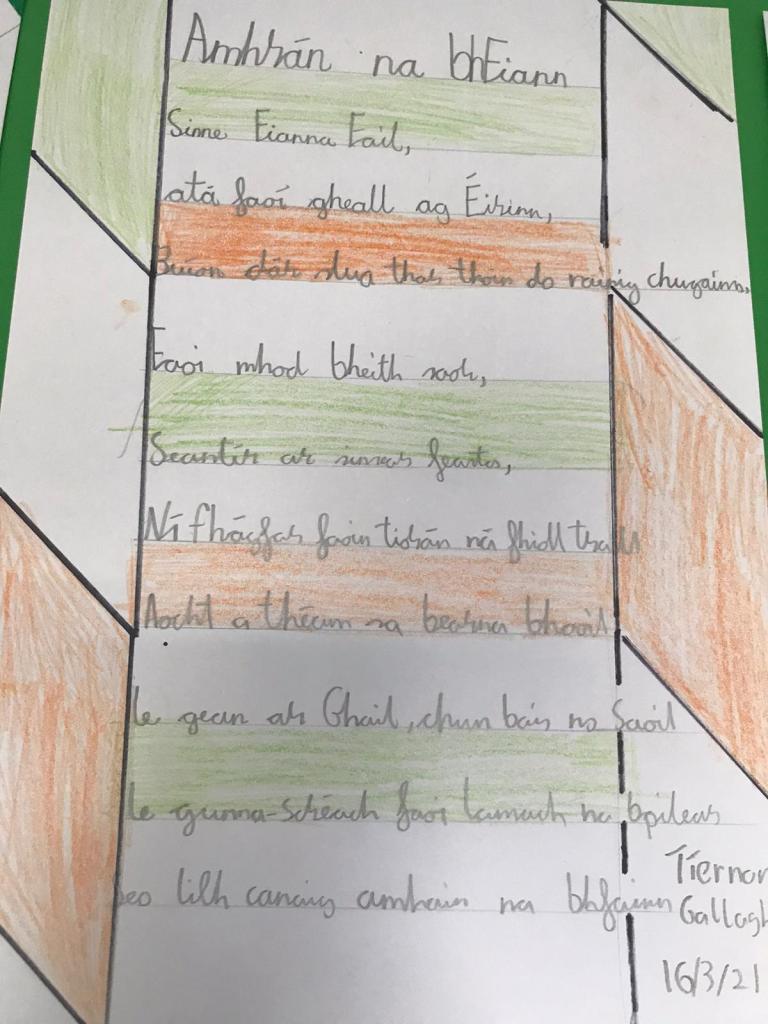 Amhrán na bhFiann
Sinne Fianna Fáil,
atá faoi gheall ag Éirinn,
Buíon dár slua thar thoin do rainig chugainn,
Faoi mhod bheith saor,
Seantír ár sinsear feasta,
Ní fhágfar faoin tiorán ná fhidll
Anocht a théam sa bearna bhaoil
le gean ar Ghail, chun báis nó Saoil
le gunna-scréach faoi lamach na bpilear
seo libh canaig amhain na bhfainn
Tíernan
16/3/21